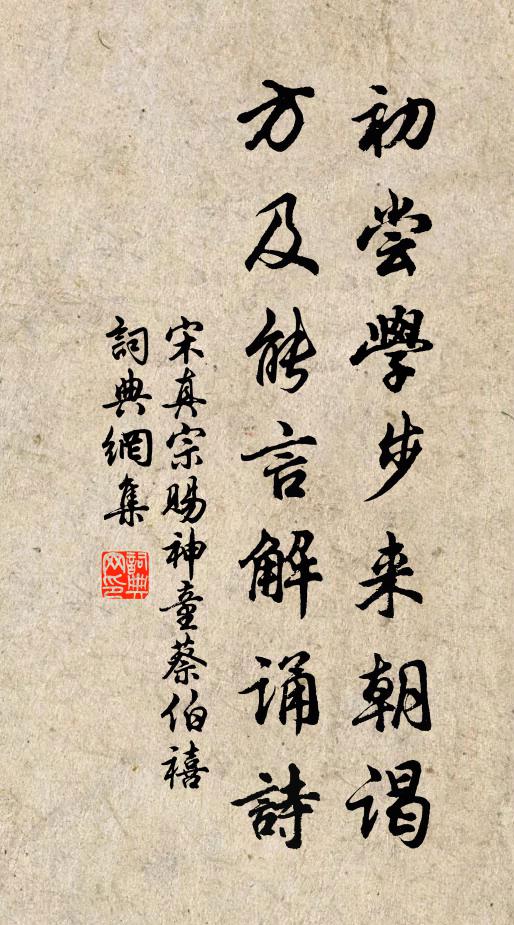 初尝學步来朝谒
方及能言解诵詩
宋真宗賜神童蔡伯禧
詞典網集
詞典网印